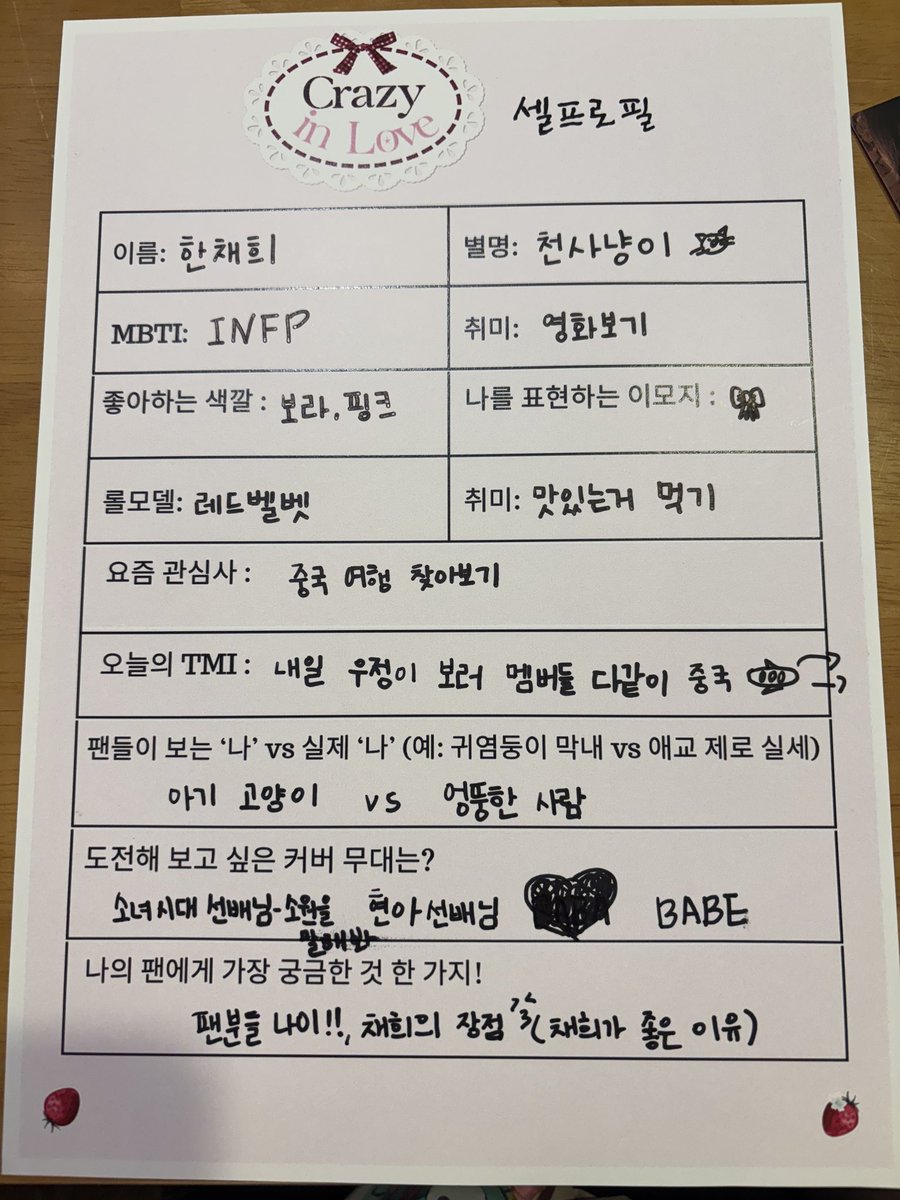 Crazy
in Love
셀프로필
이름: 한채희
별명: 천사냥이
MBTI: INFP
취미: 영화보기
좋아하는 색깔 : 보라, 핑크
나를 표현하는 이모지 :
롤모델: 레드벨벳
취미: 맛있는거 먹기
요즘 관심사 : 중국 여행 찾아보기
오늘의 TMI : 내일 우정이 보러 멤버들 다같이 중국
팬들이 보는 ‘나’ vs 실제 ‘나’ (예: 귀염둥이 막내 vs 애교 제로 실세)
아기 고양이 vs 엉뚱한 사람
도전해 보고 싶은 커버 무대는?
소녀시대 선배님-소원을 현아선배님 BABE
말해봐
나의 팬에게 가장 궁금한 것 한 가지!
팬분들 나이!!, 채희의 장점 (채희가 좋은 이유)